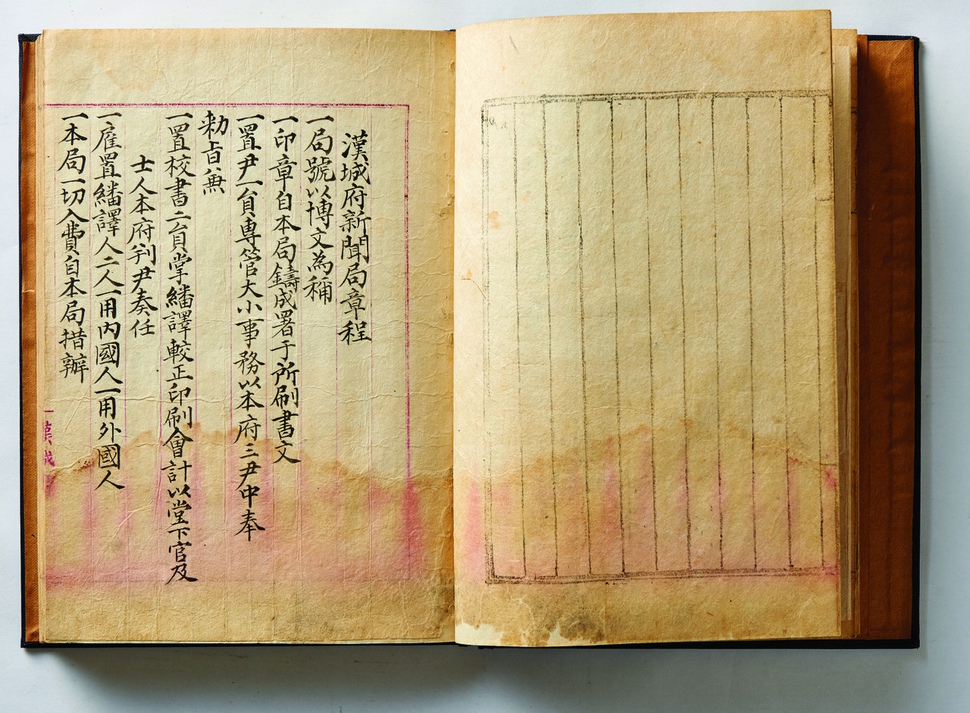 漢城府新聞局章程
一局號以博文為稱
一印章自本局鑄成署于所刷書文
一置尹一員專管大小事務以本府三尹中奉
勅旨兼
一置校書二員掌繙譯較正印刷會計以堂下官及
士人本府判尹奏任
一雇置繙譯人二人一用內國人一用外國人
一本局一切入費自本局措辦
漢城